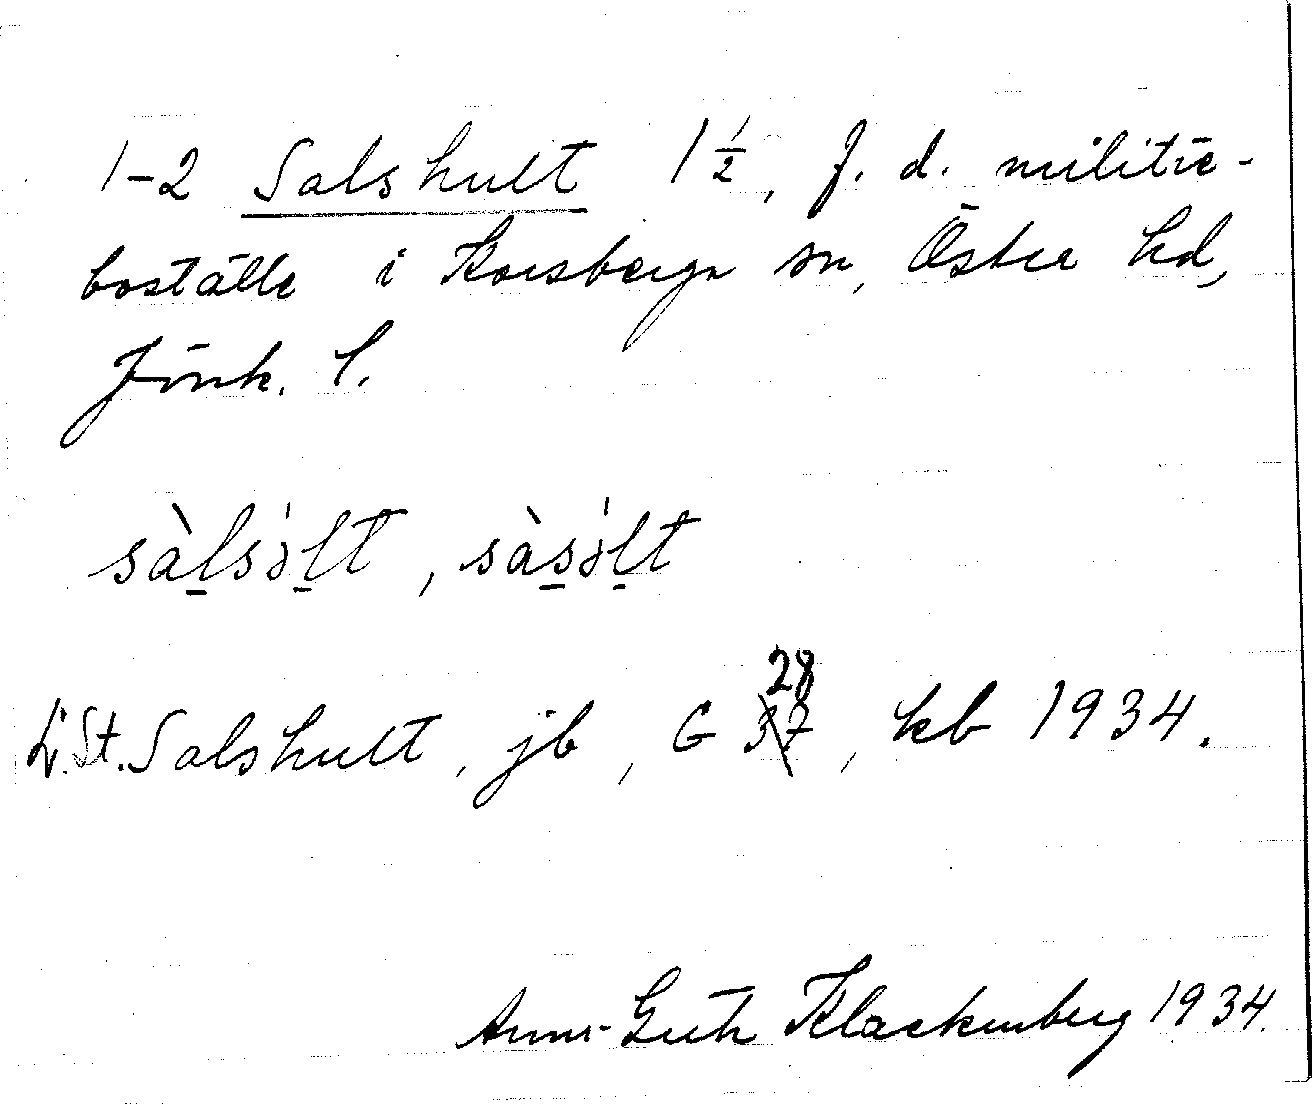 1-2 Salshult 1 1/2, f. d. militie-
boställe i Korsberga sn, Östra hd,
Jönk. l.
sàlsòlt, sàsòlt
L. St. Salshult, jb, G 28, kb 1934.
Anna-Greta Klackenberg 1934.